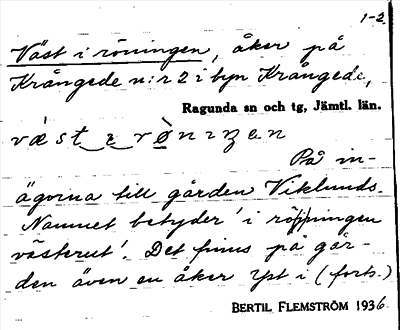 1-2.
Väst i röningen, åker på
Krångede n:r 2 i byn Krångede,
Ragunda sn och tg, Jämtl. län.
På in-
ägorna till gården Viklunds.
Namnet betyder 'i röjningen
västerut'. Det finns på går-
den även en åker Yst i (forts.)
BERTIL FLEMSTRÖM 1936.